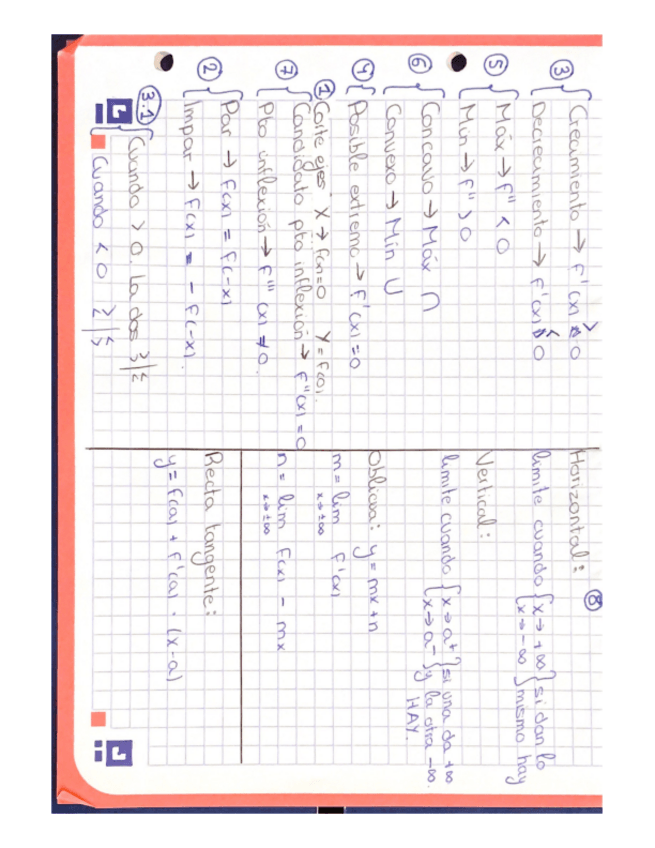 ③ Crecimiento → f'(x) > 0
Decrecimiento → f'(x) < 0
⑤ Máx → f'' < 0
Min → f'' > 0
⑥ Concavo → Máx ∩
Convexo → Min ∪
④ Posible extremo → f'(x) = 0
① Corte ejes X → f(x)=0 Y = f(0).
⑦ Candidato pto inflexión → f''(x) = 0
Pto inflexión → f'''(x) ≠ 0.
② Par → f(x) = f(-x)
Impar → f(x) = - f(-x).
3.1 Cuando > 0. La dos
Cuando < 0
⑧
Horizontal:
limite cuando { x → +∞ } si dan lo
{ x → -∞ } mismo hay
Vertical:
limite cuando { x → a+ } si una da +∞
{ x → a- } y la otra -∞.
HAY.
Oblicua: y = mx + n
m = lim f'(x)
x → ±∞
n = lim f(x) - mx
x → ±∞
Recta tangente:
y = f(a) + f'(a) · (x-a)